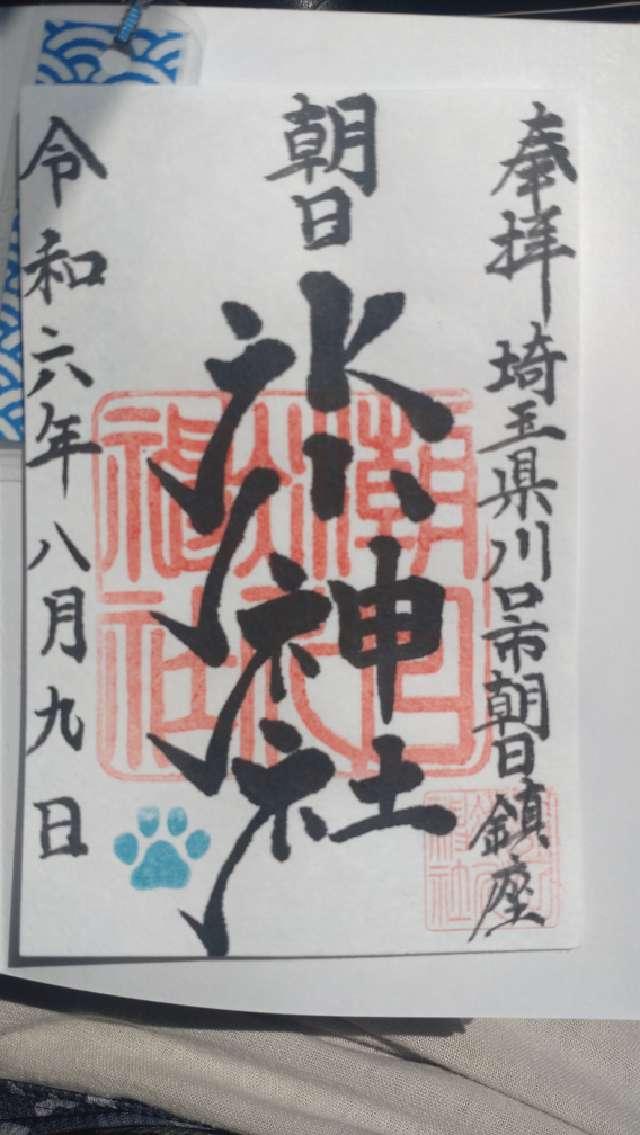 奉拝 埼玉県川口市朝日鎮座
朝日
氷川神社
令和六年八月九日